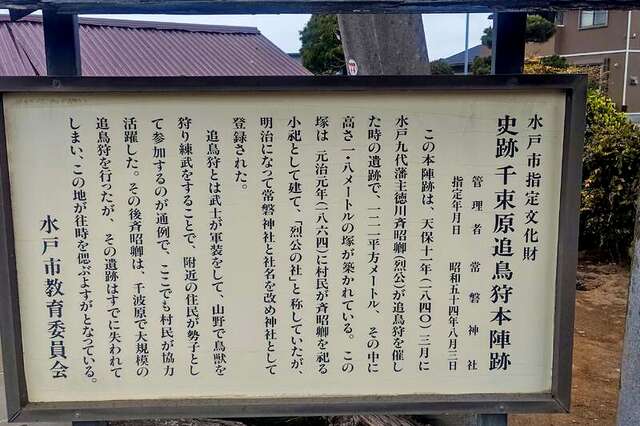 水戸市指定文化財
史跡 千束原追鳥狩本陣跡
管理者 常磐神社
指定年月日 昭和五十四年八月三日
この本陣跡は、天保十一年(一八四〇)三月に
水戸九代藩主徳川斉昭卿(烈公)が追鳥狩を催し
た時の遺跡で、一二二平方メートル、その中に
高さ一・八メートルの塚が築かれている。この
塚は、元治元年(一八六四)に村民が斉昭卿を祀る
小祀として建て、「烈公の社」と称していたが、
明治になって常磐神社と社名を改め神社として
登録された。
追鳥狩とは武士が軍装をして、山野で鳥獣を
狩り練武をすることで、附近の住民が勢子とし
て参加するのが通例で、ここでも村民が協力
活躍した。その後斉昭卿は、千波原で大規模の
追鳥狩を行ったが、その遺跡はすでに失われて
しまい、この地が往時を偲ぶよすがとなっている。
水戸市教育委員会